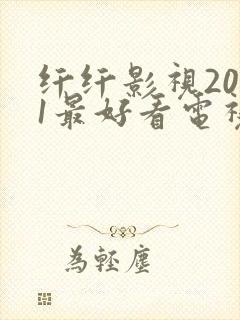 纤纤影視20
1最好看電視
為輕塵